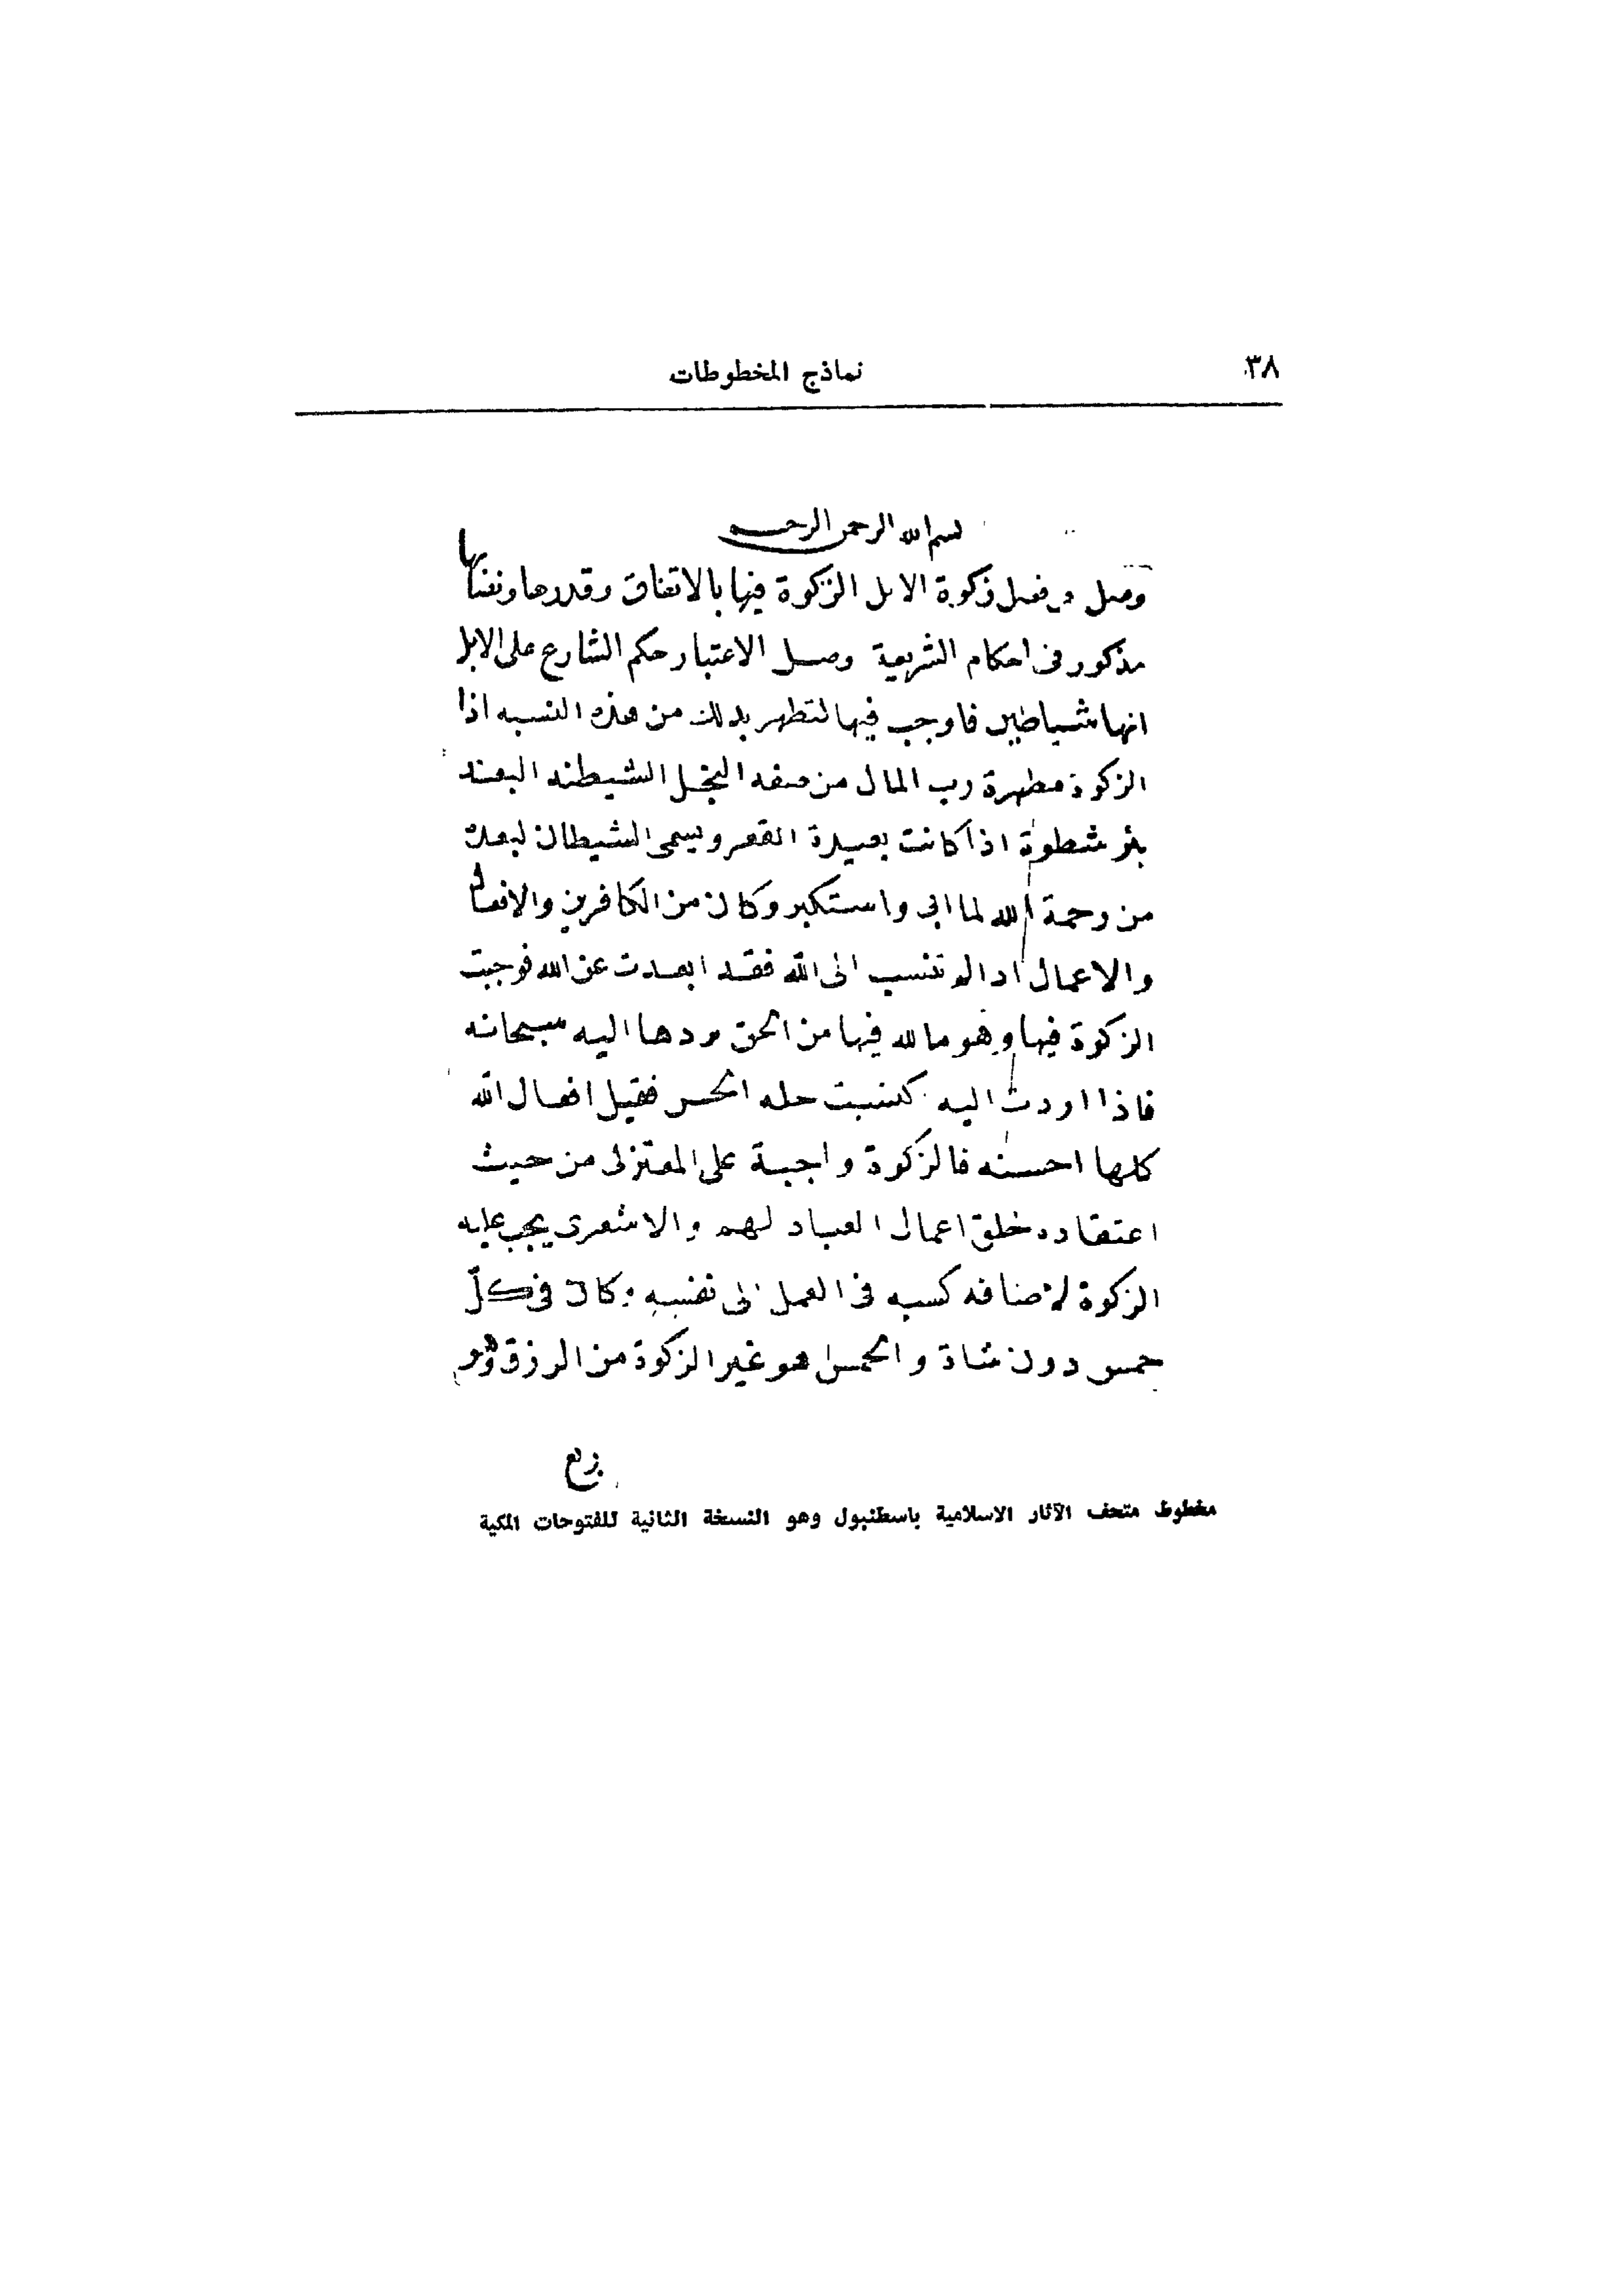 ٣٨
نماذج المخطوطات
بسم الله الرحمن الرحيم
وصل في فصل زكوة الابل الزكوة فيها بالاتفاق وقدرها ونصابها
مذكور في احكام الشريعة وصل الاعتبار حكم الشارع على الابل
انها شياطين فاوجب فيها لتطهر بذلك من هذه النسبه اذا
الزكوة مطهرة رب المال من صفه البخل الشيطنه البعد
بئر شطون اذا كانت بعيدة القعر ويسمى الشيطان لبعده
من رحمة الله لما ابى واستكبر وكان من الكافرين والافعال
والاعمال اذا لم تنسب الى الله فقد ابعدت عن الله فوجبت
الزكوة فيها وهو ما لله فيها من الحق بردها اليه سبحانه
فاذا اردت اليه كسبت حله الحسن فقيل افعال الله
كلها احسنه فالزكوة واجبة على المعتزلى من حيث
اعتقاده خلق اعمال العباد لهم والاشعرى يجب عليه
الزكوة لاضافه كسبه فى العمل الى نفسه وكان في كل
خمس دون شاة والخمس هو غير الزكوة من الرزق
ربع
مخطوط متحف الآثار الاسلامية باسطنبول وهو النسخة الثانية للفتوحات المكية